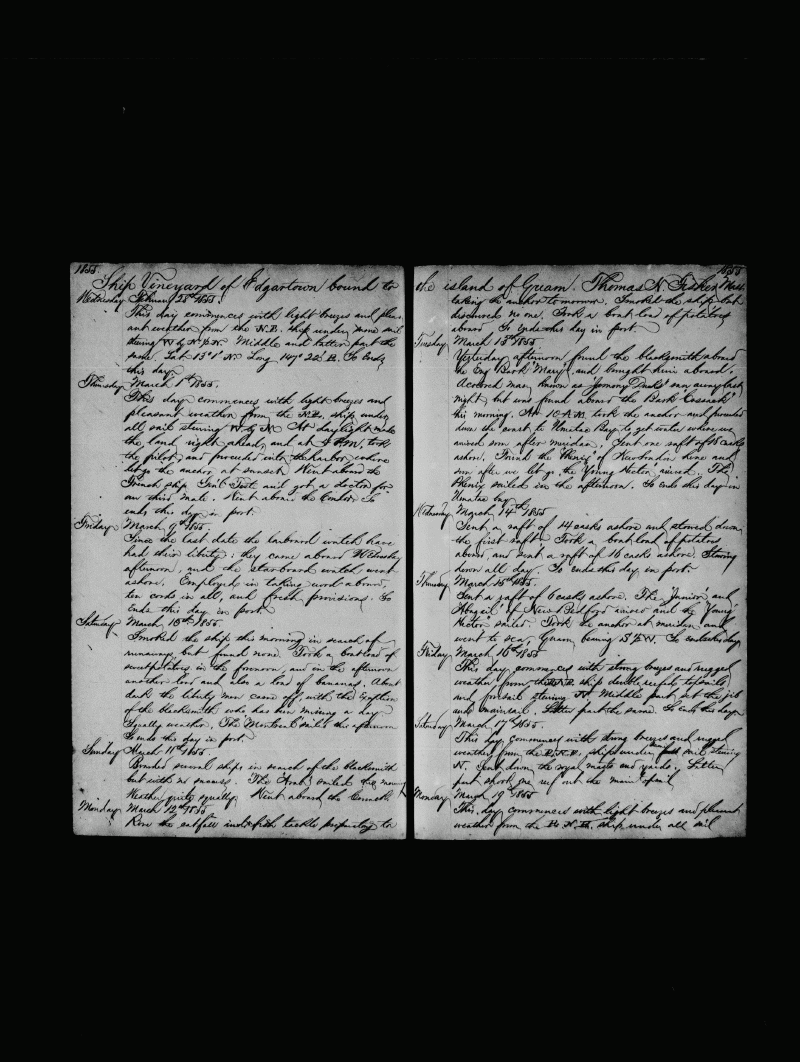 1855
Ship Vineyard of Edgartown bound to
Wednesday February 28th 1855.
This day commences with light breezes and pleas-
ant weather from the N.E. ship under more sail
stering W by N ½ N. Middle and latter part the
same. Lat 13° 1' N Long 147° 22' E. So Ends
this day.
Thursday March 1st 1855.
This day commences with light breezes and
pleasant weather from the N.E. ship under
all sail stering W by N. At daylight made
the land right ahead, and at PM, took
the pilot, and proceeded into the harbor, where
let go the anchor at sunset. Went aboard the
French ship and got a doctor for
our third mate. Went aboard the Condor. So
ends this day in port.
Friday March 9th 1855.
Since the last date the larboard watch have
had their liberty: they came aboard Wednesday
afternoon, and the starboard watch went
ashore. Employed in taking wood aboard,
ten cords in all, and fresh provisions. So
Ends this day in port
Saturday March 10th 1855.
Smoked the ship this morning in search of
runaways but found none. Took a boatload of
sweetpotatoes in the forenoon, and in the afternoon
another load and also a load of bananas. About
dark the liberty men came off, with the exception
of the blacksmith who has been missing a day
Squally weather. The sailed this afternoon
So ends this day in port.
Sunday March 11th 1855.
Boarded several ships in search of the blacksmith
but with no success. The Arab sailed this morning
Weather quite squally. Went aboard the
Monday March 12th 1855
Rove the catfall and fish tackle preparatory to
1855
the island of Gream. Thomas N. Fisher Mast.
taking the anchor tomorrow. Smoked the ship but
discovered no one. Took a boat load of potatoes
aboard. So Ends this day in port.
Tuesday March 13th 1855
Yesterday afternoon found the blacksmith aboard
the Eng Bark 'Mary', and brought him aboard.
A colored man known as 'Jemmy Ducks' ran away last
night, but was found aboard the Bark 'Cossack'
this morning. At 10 A.M. took the anchor and proceeded
down the coast to Umatac Bay to get water where we
arived soon after meridian. Sent one raft of 18 casks
ashore. Found the 'Phenix' of New London here and
soon after we let go, the 'Young Hector' arived. The
Phenix sailed in the afternoon. So ends this day in
Umatac bay
Wednesday March 14th 1855
Sent a raft of 14 casks ashore and stowed down
the first raft. Took a boat load of potatoes
aboard, and sent a raft of 16 casks ashore. Stowing
down all day. So ends this day in port.
Thursday March 15th 1855.
Sent a raft of 6 casks ashore. The 'Junior' and
'Abigail' of New Bedford arived and the 'Young
Hector' sailed. Took the anchor at meridian and
went to sea, Gream bearing S E W. So ends this day
Friday March 16th 1855
This day commences with strong breezes and rugged
weather from the E.N.E. ship double reefed topsails
and foresail stering N. Middle part, set the jib
and mainsail. Latter part the same. So ends this day
Saturday March 17th 1855.
This day commences with strong breezes and rugged
weather from the E.N.E., ship under sail stering
N. Sent down the royal masts and yards. Latter
part shook one reef out the main topsail
Monday March 19th 1855
This day commences with light breezes and pleasant
weather from the E. N. E. ship under all sail